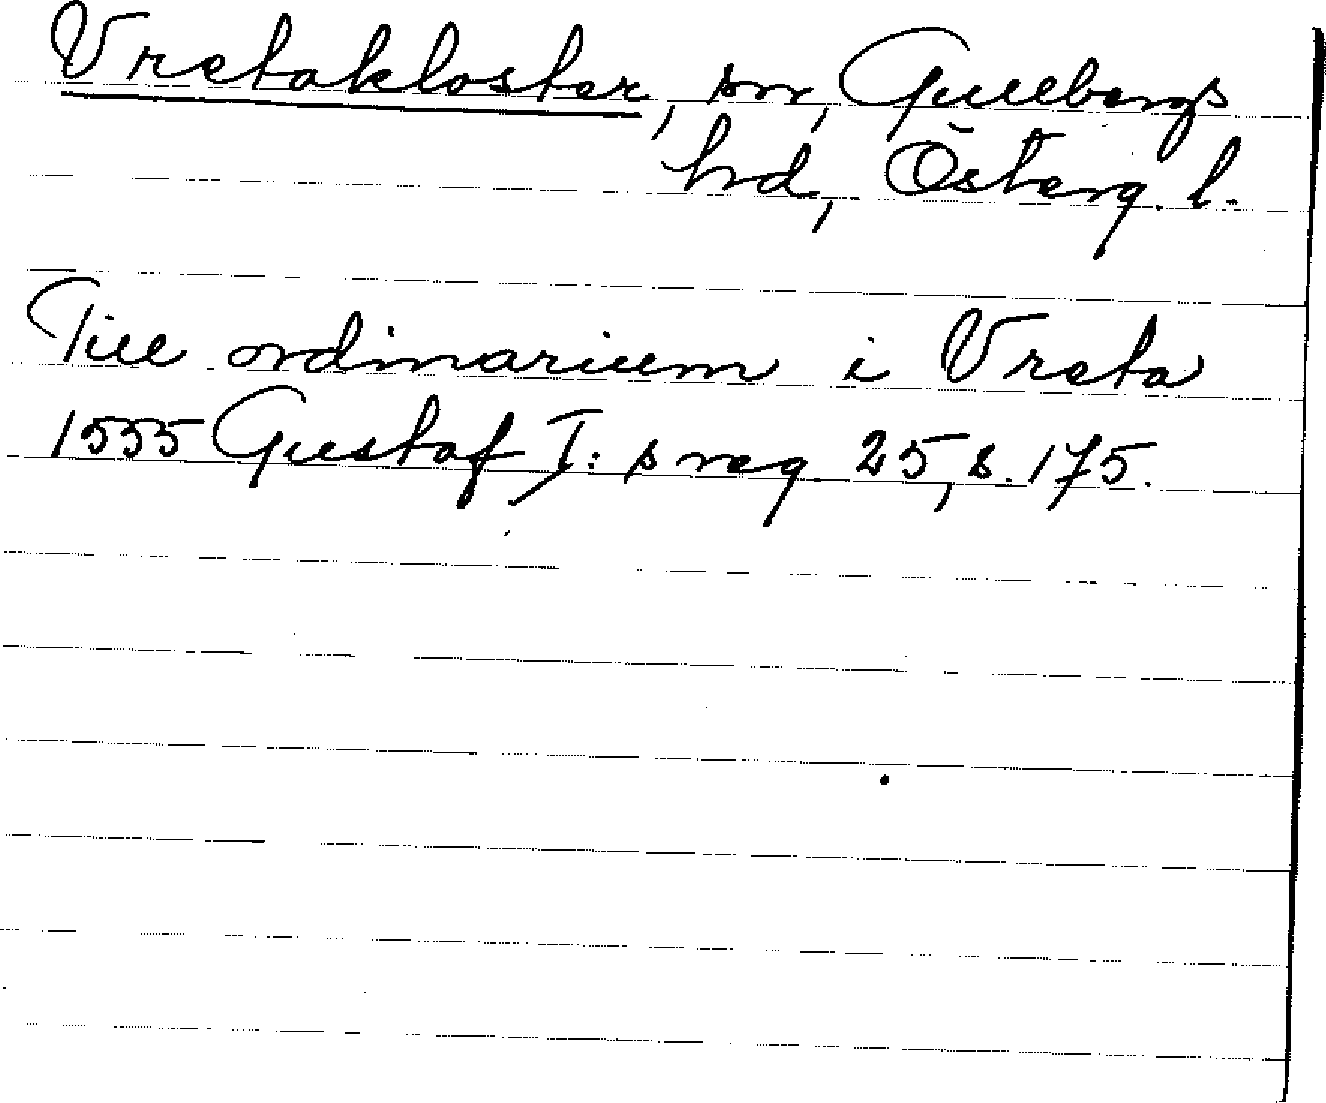 Vretakloster, sn, Gullbergs
hd, Österg. l.
Till ordinarium i Vreta
1555 Gustaf I:s reg 25, s. 175.